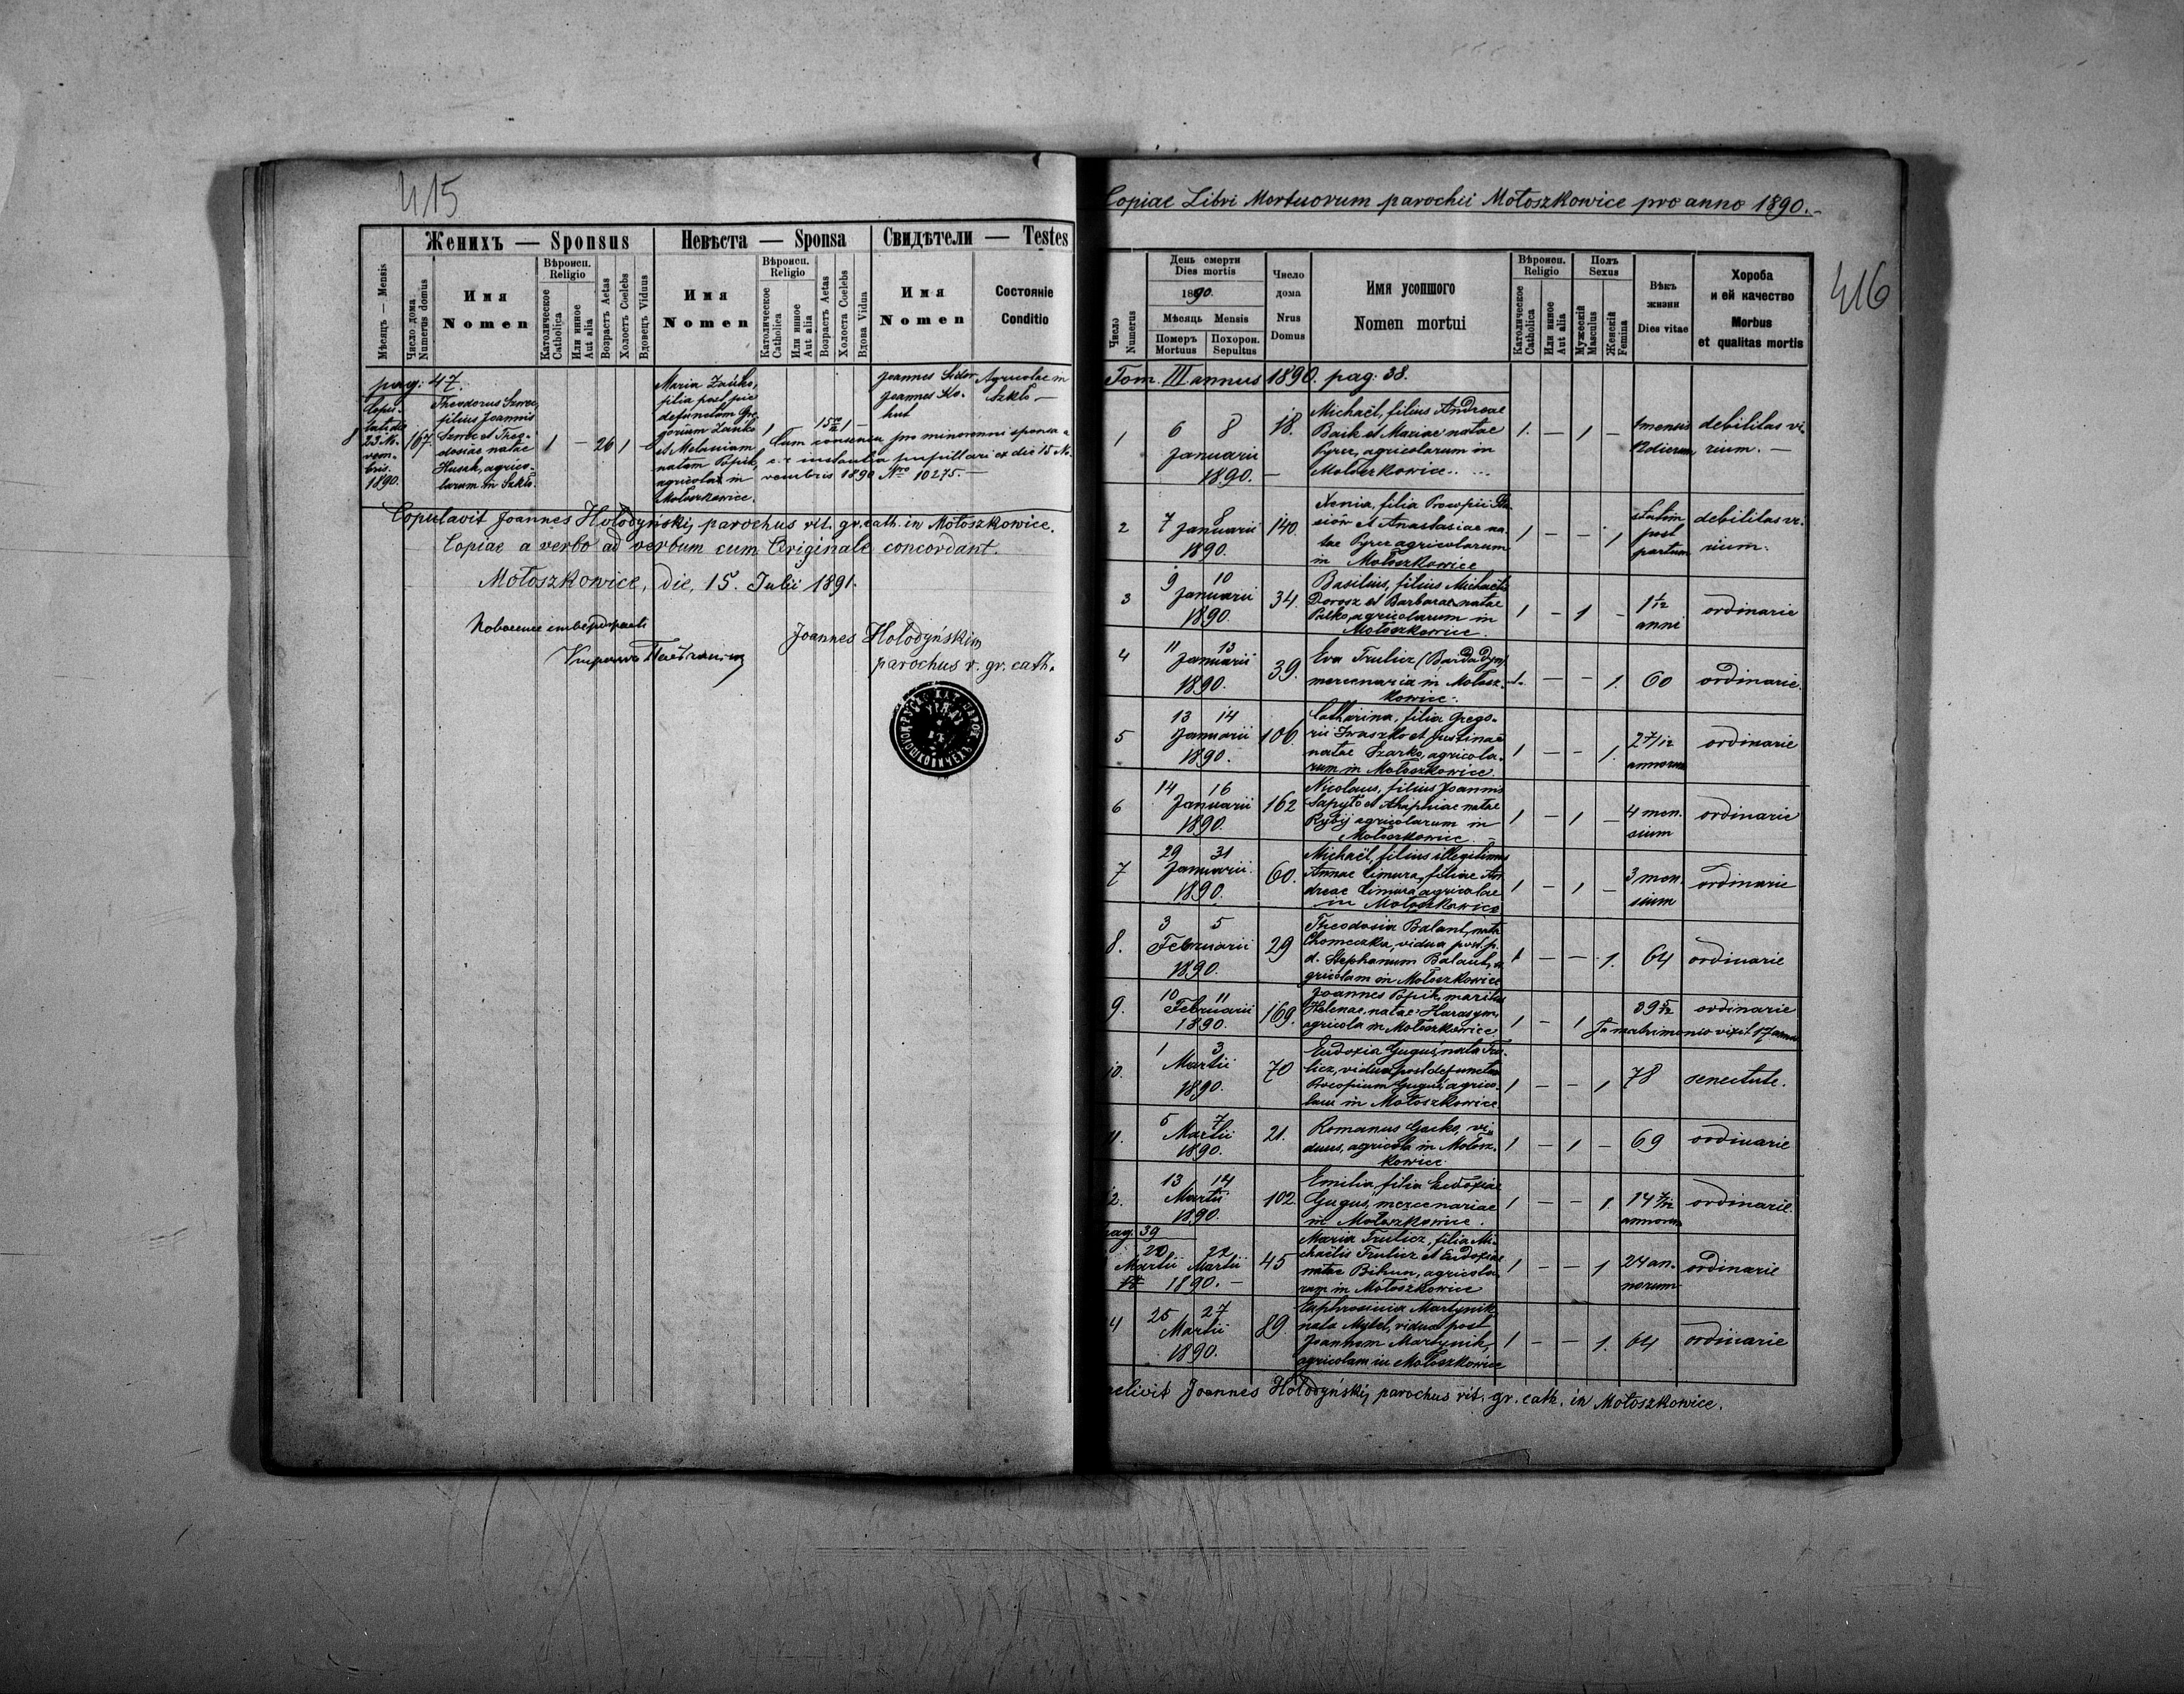 415
Женихъ — Sponsus
Невѣста — Sponsa
Свидѣтели — Testes
Мѣсяць — Mensis
Число дома
Numerus domus
Имя
Nomen
Вѣроисп.
Religio
Католическое
Catholica
Или инное
Aut alia
Возрастъ Aetas
Холостъ Coelebs
Вдовець Viduus
Имя
Nomen
Вѣроисп.
Religio
Католическое
Catholica
Или инное
Aut alia
Возрастъ Aetas
Холоста Coelebs
Вдова Vidua
Имя
Nomen
Состояніе
Conditio
pag: 47.
8
23 No-
vem-
bris.
1890.
167.
Theodorus Szwec,
filius Joannis
Szwec et Theo-
dosiae natae
Husak, agrico-
larum in Szkło.
1 — 26 1 —
Maria Zańko,
filia post pie
defunctum Gre-
gorium Zańko
et Melaniam
natam Popik,
agricolas in
Mołoszkowice.
1 1 —
Joannes Sidor
Joannes Ko-
hut
Agricolae in
Szkło —
Cum consensu pro minorenni sponsa
pupillari ex die 15 No-
vembris 1890 Nro 10275. —
Copulavit Joannes Hołodyńskij, parochus rit. gr. cath. in Mołoszkowice.
Copiae a verbo ad verbum cum Originale concordant.
Mołoszkowice, die, 15. Julii 1891.
Joannes Hołodyńskij
parochus r. gr. cath.
Copiae Libri Mortuorum parochii Mołoszkowice pro anno 1890.
416
Число
Numerus
День смерти
Dies mortis
1890.
Мѣсяць Mensis
Померъ
Mortuus
Похорон.
Sepultus
Число
дома
Nrus
Domus
Имя усопшого
Nomen mortui
Вѣроисп.
Religio
Католическое
Catholica
Или инное
Aut alia
Полъ
Sexus
Мужескій
Masculus
Женскій
Femina
Вѣкъ
жизни
Dies vitae
Хороба
и ей качество
Morbus
et qualitas mortis
Tom. III annus 1890. pag: 38.
1
6 8
Januarii
1890.
18.
Michaël, filius Andreae
Baik et Mariae natae
Pyrcz, agricolarum in
Mołoszkowice.
1. — 1 —
1 mensis
dierum
debilitas vi-
rium. —
2
7 8
Januarii
1890.
140.
Xenia, filia Procopii
et Anastasiae na-
tae Pyrcz agricolarum
in Mołoszkowice
1 — — 1
statim
post
partum
debilitas vi-
rium.
3
9 10
Januarii
1890.
34.
Basilius, filius Michaëlis
Dorosz et Barbarae natae
Palko, agricolarum in
Mołoszkowice.
1 — 1 —
1 1/12
anni
ordinarie
4
11 13
Januarii
1890.
39.
Eva Trulicz
mercenaria in Mołosz-
kowice.
1. — — 1.
60
ordinarie.
5
13 14
Januarii
1890.
106.
Catharina, filia Grego-
rii Iwaszko et Justinae
natae Szarko, agricola-
rum in Mołoszkowice
1 — — 1.
2 7/12
annorum
ordinarie
6
14 16
Januarii
1890.
162
Nicolaus, filius Joannis
Sapyto et Ahaphiae natae
Rybij agricolarum in
Mołoszkowice
1 — 1 —
4 men-
sium
ordinarie
7
29 31
Januarii
1890.
60.
Michaël, filius illegitimus
Annae Cimura, filiae An-
dreae Cimura agricolae
in Mołoszkowice
1 — 1 —
3 men-
sium
ordinarie
8.
3 5
Februarii
1890.
29
Theodosia Balant, nata
Chomeczka, vidua post p.
d. Stephanum Balant, a-
gricolam in Mołoszkowice
1 — — 1.
64
ordinarie
9.
10 11
Februarii
1890.
169.
Joannes Popik, maritus
Helenae, natae Harasym,
agricola in Mołoszkowice
1 — 1
ordinarie
In matrimonio vixit 17 annis
10.
1 3
Martii
1890.
70
Eudoxia Guguś, nata Tru-
licz, vidua post defunctum
Procopium Guguś, agrico-
lam in Mołoszkowice
1 — — 1
78
senectute.
11.
5 7
Martii
1890.
21.
Romanus Gacko, vi-
duus, agricola in Mołosz-
kowice
1 — 1 —
69
ordinarie
2.
13 14
Martii
1890.
102.
Emilia, filia Eudoxiae
Guguś, mercenariae
in Mołoszkowice.
1 — — 1.
14 7/12
annorum
ordinarie.
pag. 39
20 22
Martii Martii
1890. —
45
Maria Trulicz, filia Mi-
chaëlis Trulicz et Eudoxiae
natae Bihun, agricola-
rum in Mołoszkowice
1 — — 1
24 an-
norum
ordinarie
4
25 27
Martii
1890.
89.
Euphrosinia Martynik
nata Mytel, vidua post
Joannem Martynik,
agricolam in Mołoszkowice
1 — — 1.
64
ordinarie
Joannes Hołodyńskij, parochus rit. gr. cath. in Mołoszkowice.